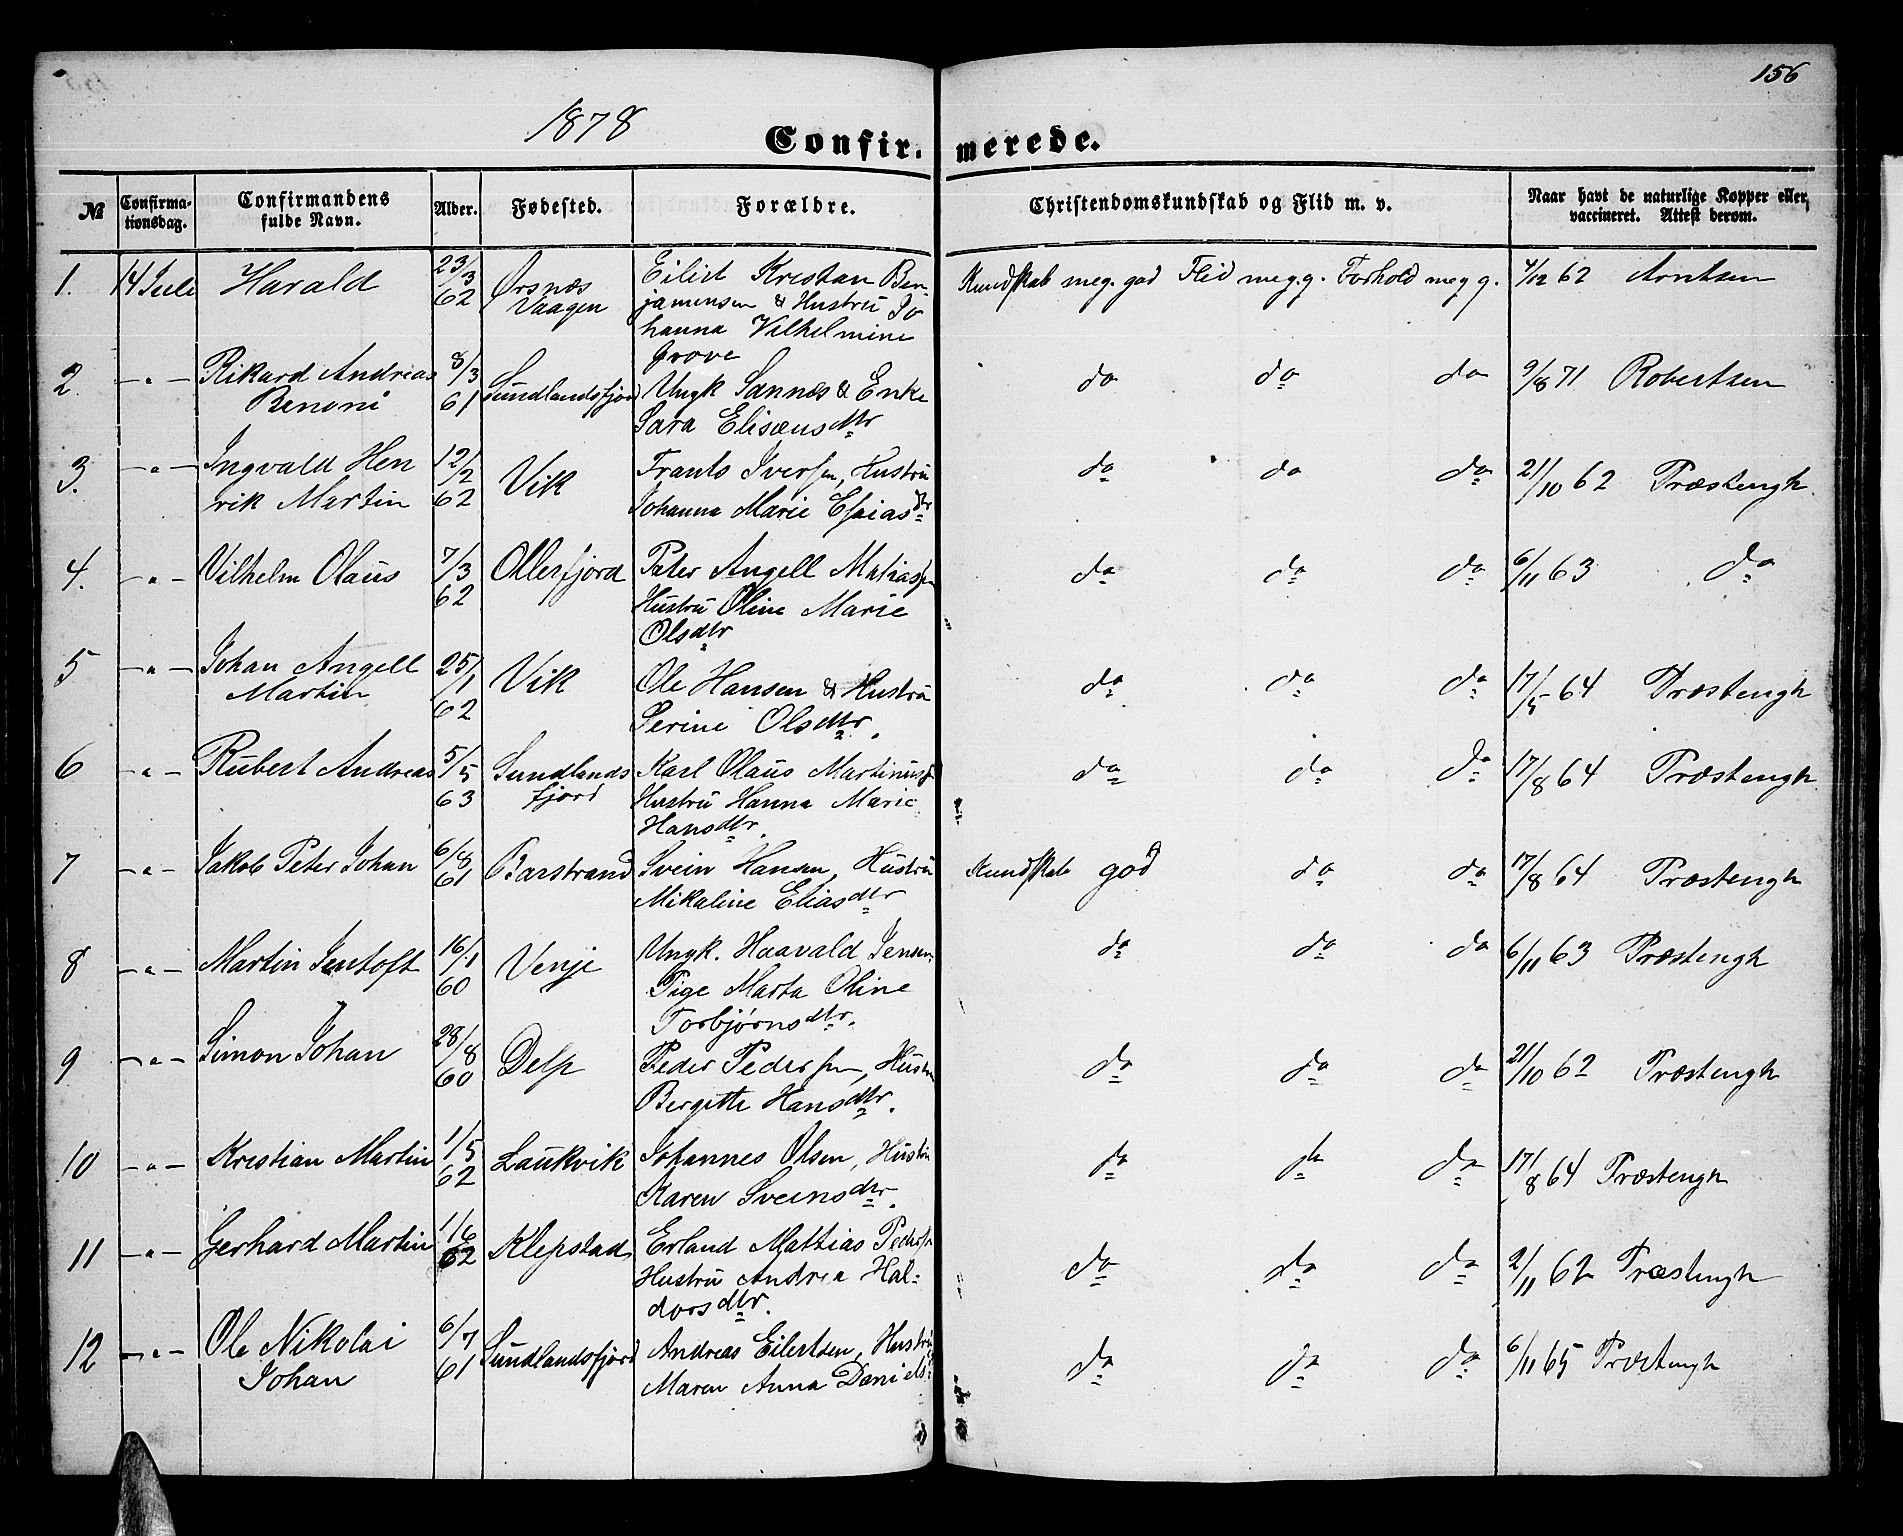 156
1878
Confirmerede.
№ Confirmationsdag. Confirmandens fulde Navn. Alder. Fødested. Forældre. Christendomskundskab og Flid m. v. Naar havt de naturlige Kopper eller vaccineret. Attest derom.
1. 14 Juli Harald 23/3 62 Ørsnæs Vaagen Eilert Kristan Ben- Kundskab meg. god Flid meg. g. Forhold meg g. 4/12 62 Arntsen
jaminsen & Hustru Jo
hanna Vilhelmine
Grove
2. -"- Rikard Andreas 8/3 61 Sundlandsfjord Ungk Sannes & Enke do do do 9/8 71 Robertsen
Benoni Sara Elisæusdtr
3. -"- Ingvald Hen 12/2 62 Vik Frants Iversen, Hustru do do do 21/10 62 Præstengh.
rik Martin Johanna Marie Esaiasdtr
4. -"- Vilhelm Olaus 7/3 62 Ollerfjord Peter Angell Matiassen do do do 6/11 63 do
Hustru Oline Marie
Olsdtr
5 -"- Johan Angell 25/1 62 Vik Ole Hansen & Hustru do do do 17/5 64 Præstengh
Martin Serine Olsdtr.
6 -"- Rubert Andreas 5/5 63 Sundlands Karl Olaus Martinuss do do do 17/8 64 Præstengh
fjord Hustru Hanna Marie
Hansdtr.
7 -"- Jakob Peter Johan 6/8 61 Barstrand Svein Hansen, Hustru Kundskab god do do 17/8 64 Præstengh
Mikaline Eliasdtr
8 -"- Martin Jentoft 16/1 60 Venje Ungk. Haavald Jensen, do do do 6/11 63 Præstengh
Pige Marta Oline
Torbjørnsdtr.
9 -"- Simon Johan 28/8 60 Delp Peder Pedersen, Hustru do do do 21/10 62 Præstengh
Bergitte Hansdtr.
10 -"- Kristian Martin 1/5 62 Laukvik Johannes Olsen, Hustru do do do 17/8 64 Præstengh
Karen Sveinsdtr.
11 -"- Gerhard Martin 1/6 62 Klepstad Erland Mattias Pedersen do do do 2/11 62 Præstengh
Hustru Andrea Hal-
dorsdtr.
12 -"- Ole Nikolai 6/7 61 Sundlandsfjord Andreas Eilertsen, Hustru do do do 6/11 65 Præstengh
Johan Maren Anna Daniels